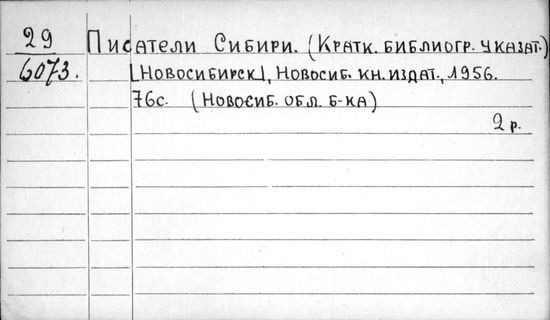 29 Писатели Сибири. (Кратк. библиогр. указат.)
6073. [Новосибирск], Новосиб. кн. издат., 1956.
76с. (Новосиб. обл. б-ка)
2 р.